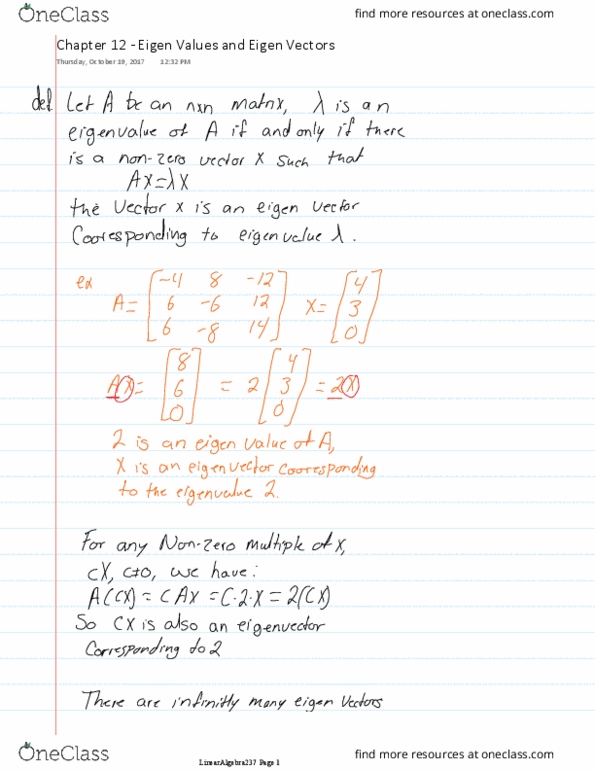 OneClass
find more resources at oneclass.com
Chapter 12 - Eigen Values and Eigen Vectors
Thursday, October 19, 2017 12:32 PM
def Let A be an nxn matrix, λ is an
eigenvalue of A if and only if there
is a non-zero vector X such that
AX=λX
the vector x is an eigen vector
Cooresponding to eigenvalue λ.
ex
A= [-4 8 -12
6 -6 12
6 -8 14] X= [4
3
0]
A(X)= [8
6
0] = 2 [4
3
0] = 2(X)
2 is an eigen value of A,
X is an eigenvector cooresponding
to the eigenvalue 2.
For any Non-zero multiple of X,
cX, c≠0, we have:
A(CX) = CAX = C·2·X = 2(CX)
So CX is also an eigenvector
Corresponding to 2
There are infinitly many eigen vectors
OneClass
LinearAlgebra237 Page 1
find more resources at oneclass.com